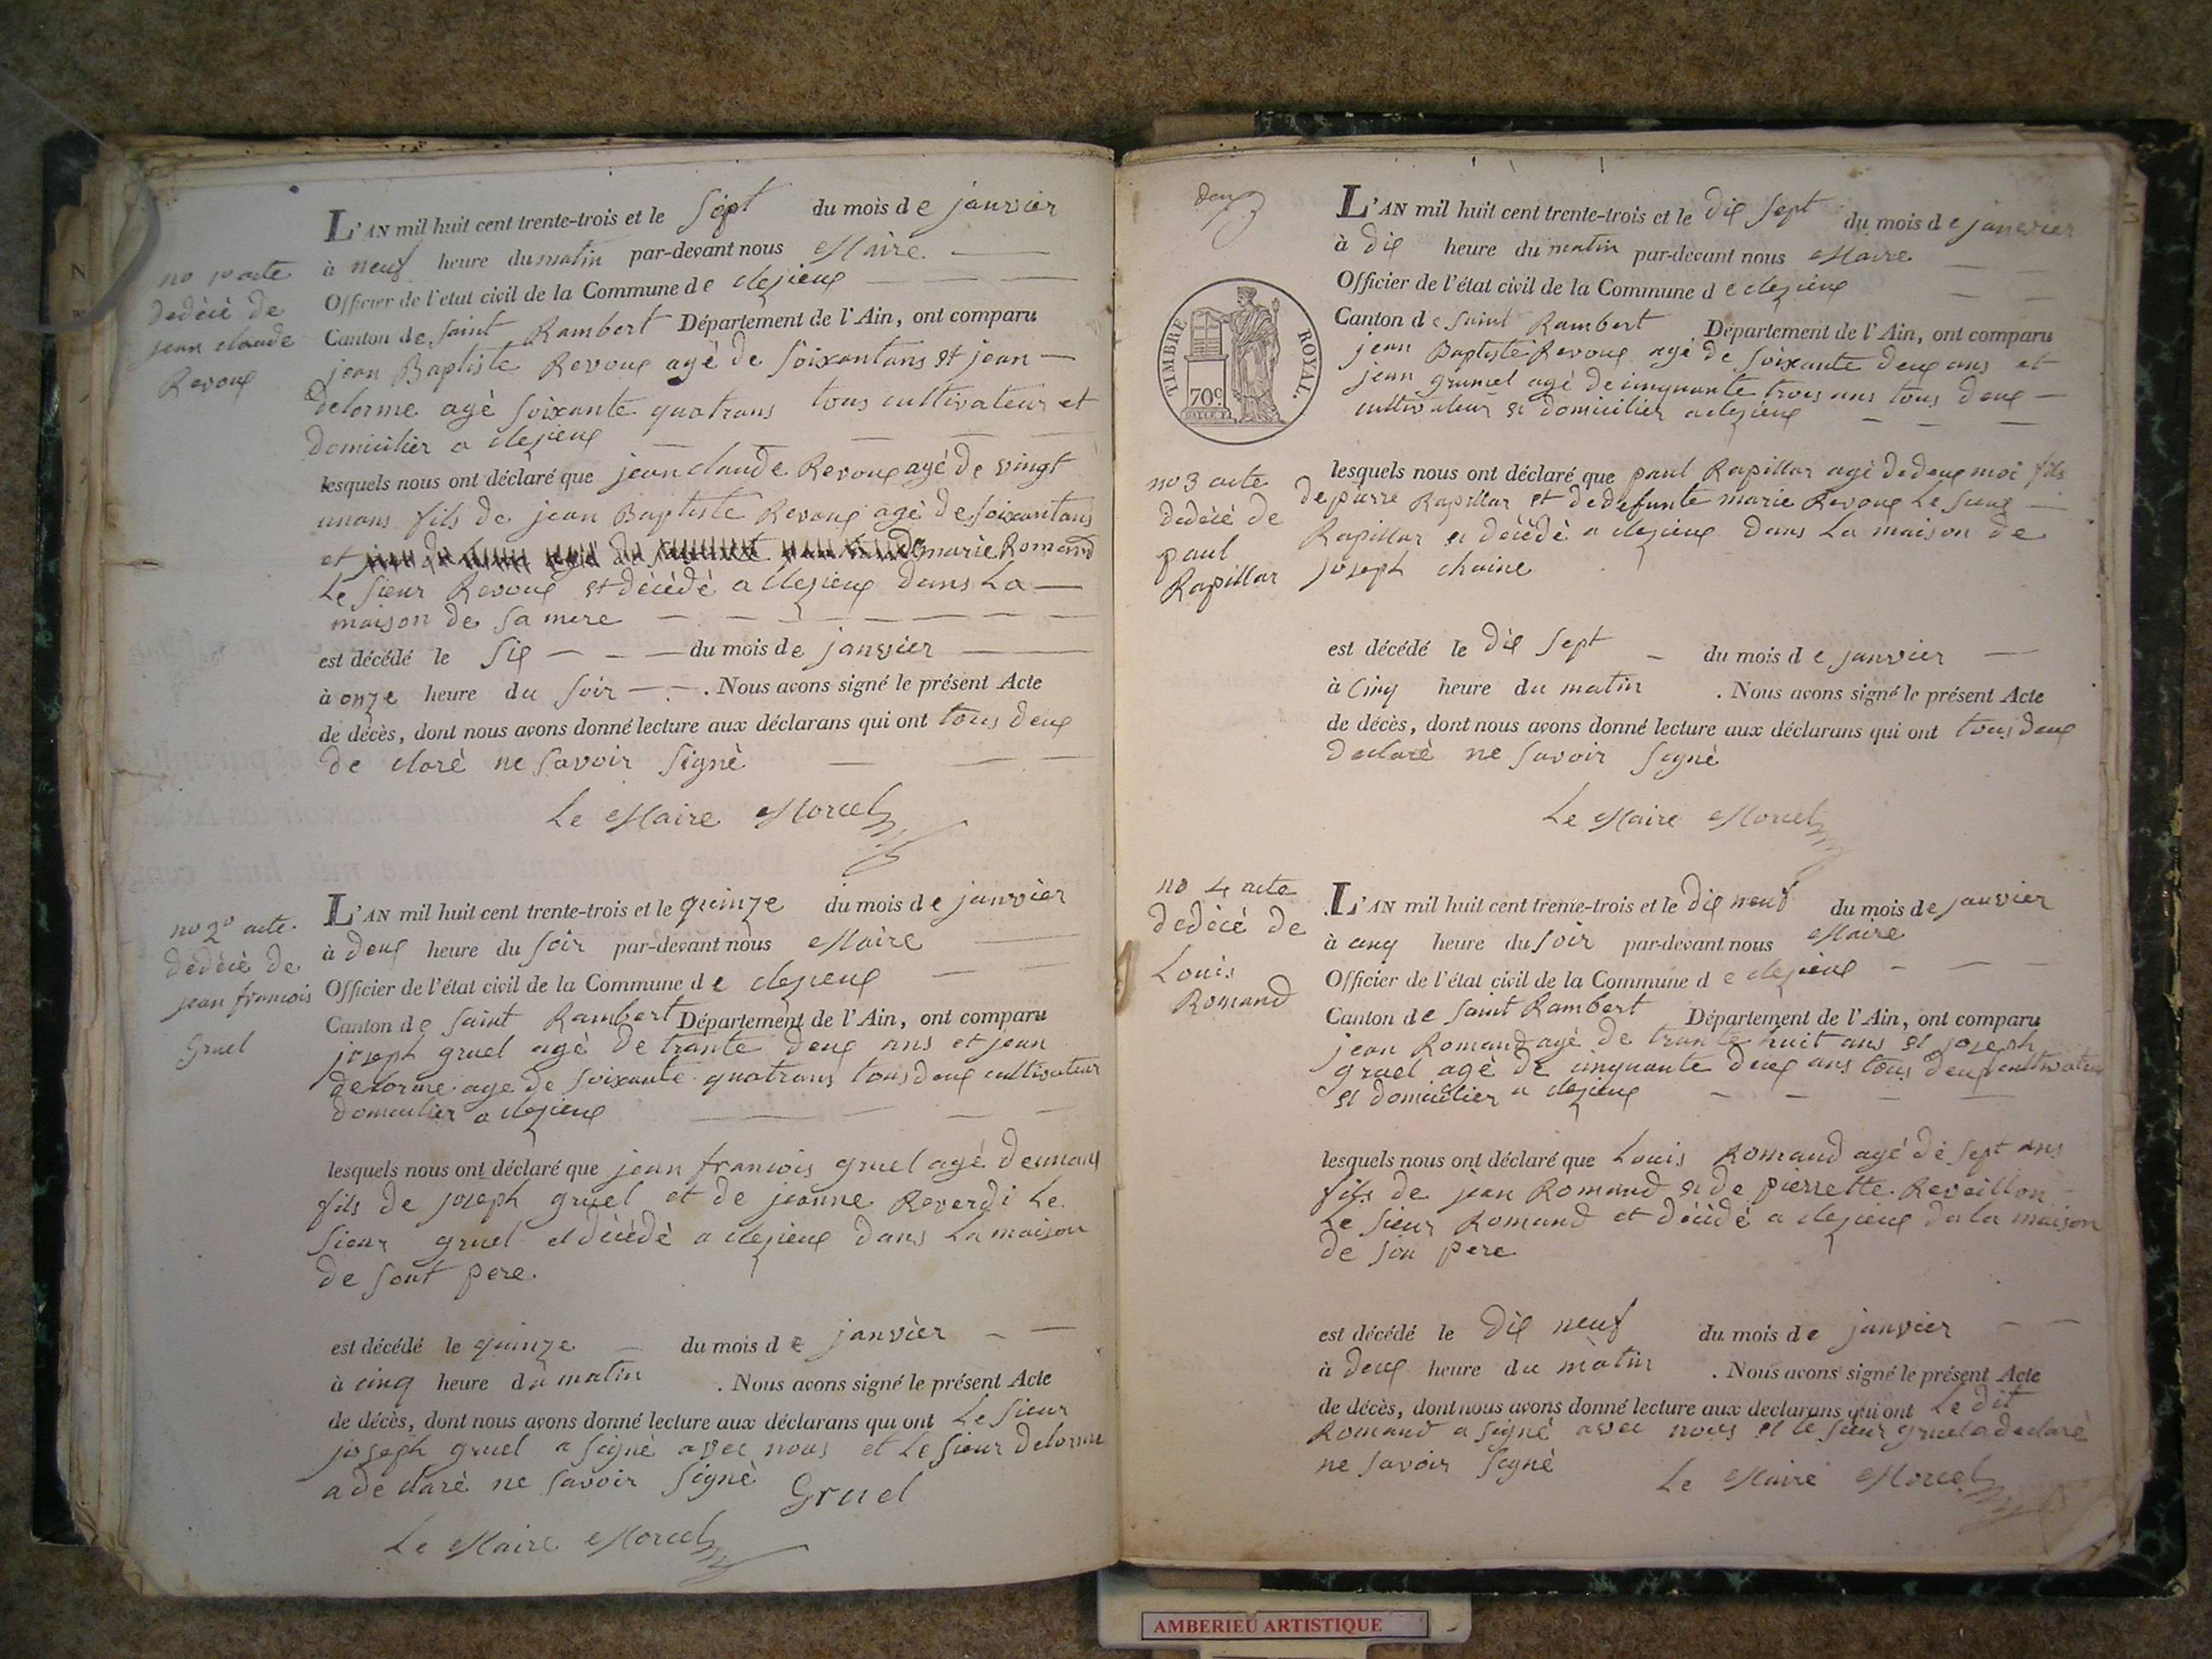 L'AN mil huit cent trente-trois et le sept du mois de janvier
à neuf heure du matin par-devant nous Maire
Officier de l'état civil de la Commune de clezieux
Canton de saint Rambert Département de l'Ain, ont comparu
jean Baptiste Revoux agé de soixantans et jean
delorme agé soixante quatrans tous cultivateur et
domicilier a clezieux
no 1er acte
dedécé de
jean claude
Revoux
lesquels nous ont déclaré que jean claude Revoux agé de vingt
unans fils de jean Baptiste Revoux agé de soixantans
et marie Romand
Le sieur Revoux et décédé a clezieux dans La
maison de sa mere
est décédé le six du mois de janvier
à onze heure du soir . Nous avons signé le présent Acte
de décès, dont nous avons donné lecture aux déclarans qui ont tous deux
de claré ne savoir signé
Le Maire Morcel
no 2e acte
dedécé de
jean francois
Gruel
L'AN mil huit cent trente-trois et le quinze du mois de janvier
à deux heure du soir par-devant nous Maire
Officier de l'état civil de la Commune de clezieux
Canton de saint Rambert Département de l'Ain, ont comparu
joseph gruel agé de trante deux ans et jean
delorme age de soixante quatrans tous deux cultivateur
domicilier a clezieux
lesquels nous ont déclaré que jean francois gruel agé deunans
fils de joseph gruel et de jeanne Reverdi Le
sieur gruel et décédé a clezieux dans La maison
de sont pere.
est décédé le quinze du mois de janvier
à cinq heure du matin . Nous avons signé le présent Acte
de décès, dont nous avons donné lecture aux déclarans qui ont Le sieur
joseph gruel a signé avec nous et Le sieur delorme
a de claré ne savoir signé Gruel
Le Maire Morcel
deux
TIMBRE ROYAL.
70c.
L'AN mil huit cent trente-trois et le dix sept du mois de janvier
à dix heure du matin par-devant nous Maire
Officier de l'état civil de la Commune de clezieux
Canton de saint Rambert Département de l'Ain, ont comparu
jean Baptiste Revoux agé de soixante deux ans et
jean grumel agé de cinquante trois ans tous deux
cultivateur et domicilier a clezieux
no 3 acte
dedécé de
paul
Rapillar
lesquels nous ont déclaré que paul Rapillar agé dedeux moi fils
de pierre Rapillar et dedefunte marie Revoux Le sieur
Rapillar et décédé a clezieux dans La maison de
joseph chaine
est décédé le dix sept du mois de janvier
à cinq heure du matin . Nous avons signé le présent Acte
de décès, dont nous avons donné lecture aux déclarans qui ont tous deux
declaré ne savoir signé
Le Maire Morcel
no 4 acte
dedécé de
Louis
Romand
L'AN mil huit cent trente-trois et le dix neuf du mois de janvier
à cinq heure du soir par-devant nous Maire
Officier de l'état civil de la Commune de clezieux
Canton de saint Rambert Département de l'Ain, ont comparu
jean Romand agé de trante huit ans et joseph
gruel agé de cinquante deux ans tous deux cultivateur
et domicilier a clezieux
lesquels nous ont déclaré que Louis Romand agé de sept ans
fils de jean Romand et de pierrette Reveillon
Le sieur Romand et décédé a clezieux da la maison
de son pere
est décédé le dix neuf du mois de janvier
à deux heure du matin . Nous avons signé le présent Acte
de décès, dont nous avons donné lecture aux déclarans qui ont Le dit
Romand a signé avec nous et le sieur gruel a declaré
ne savoir signé Le Maire Morcel
AMBERIEU ARTISTIQUE